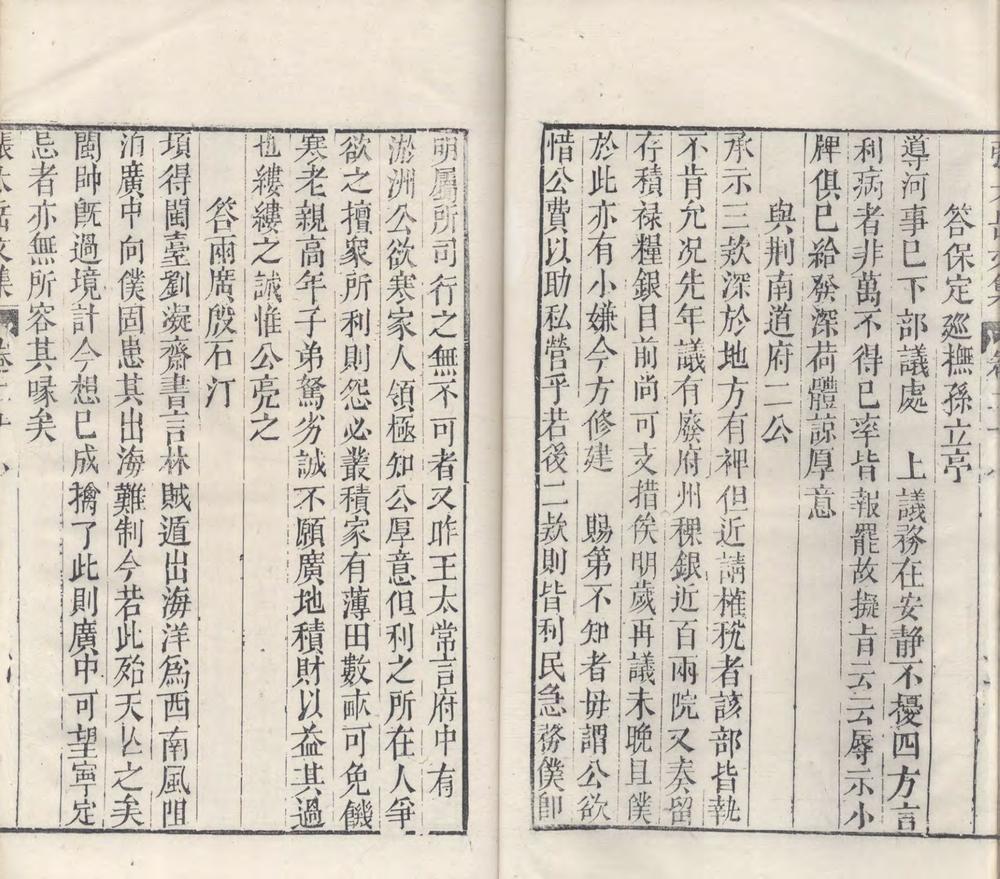 答保定廵撫孫立亭
導河事已下部議處　上議務在安靜不擾四方言
利病者非萬不得已率皆報罷故擬旨云云辱示小
牌俱已給發深荷體諒厚意
與荆南道府二公
承示三款深於地方有裨但近請榷稅者該部皆執
不肯允况先年議有廢府州稞銀近百兩院又奏留
存積祿糧銀目前尚可支措俟明歲再議未晚且僕
於此亦有小嫌今方修建　賜第不知者毋謂公欲
惜公費以助私營乎若後二款則皆利民急務僕卽
萌屬所司行之無不可者又昨王太常言府中有
淤洲公欲寒家人領極知公厚意但利之所在人爭
欲之擅衆所利則怨必叢積家有薄田數畝可免饑
寒老親高年子弟駑劣誠不願廣地積財以益其過
也縷縷之誠惟公亮之
答兩廣殷石汀
頃得閩臺劉凝齋書言林賊遁出海洋爲西南風阻
泊廣中向僕固患其出海難制今若此殆天亾之矣
閩帥旣過境計今想已成擒了此則廣中可望寧定
忌者亦無所容其喙矣
張太岳文集　卷二十八